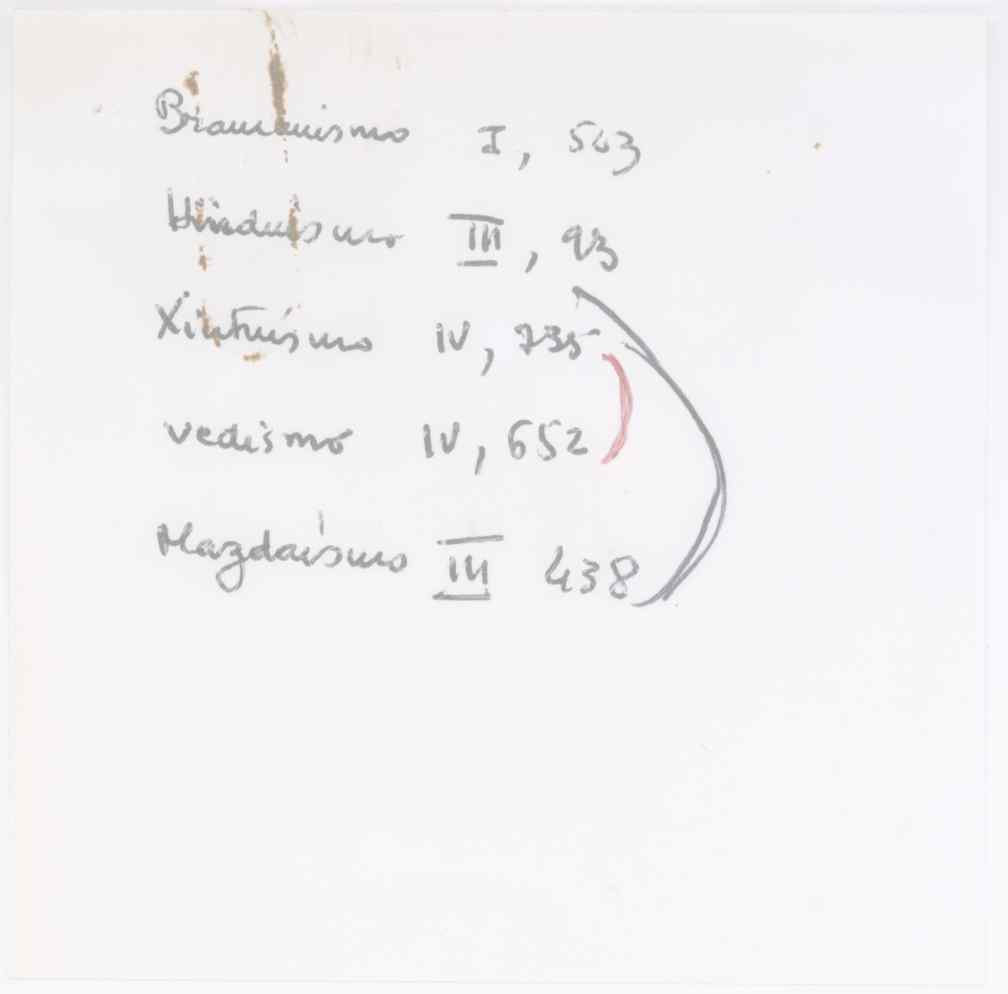 Bramanismo I, 543
Hinduismo III, 93
Xintuísmo IV, 735
vedismo IV, 652
Mazdaísmo III 438